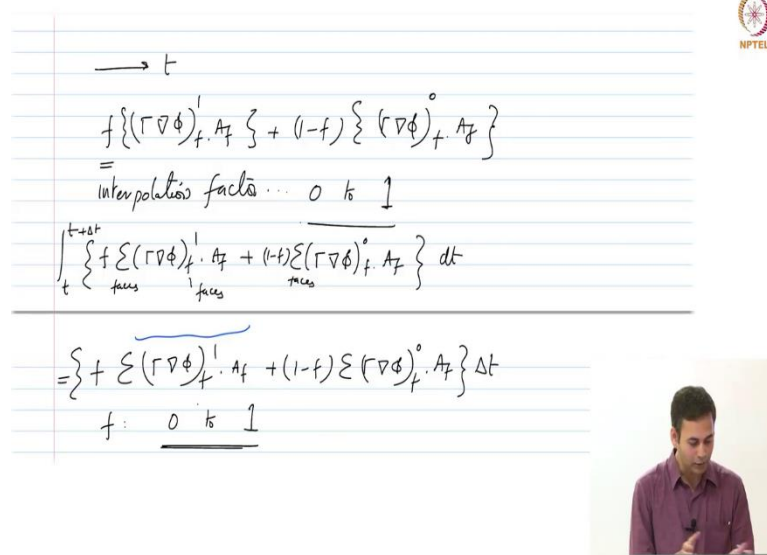 NPTEL
⟶ t
f{(Γ∇φ)¹_f . A_f } + (1-f) { (Γ∇φ)⁰_f . A_f }
=
interpolation factor ... 0 to 1
∫_t^{t+Δt} { f Σ_{faces} (Γ∇φ)¹_f . A_f + (1-f) Σ_{faces} (Γ∇φ)⁰_f . A_f } dt
1 faces
= { f Σ (Γ∇φ)¹_f . A_f + (1-f) Σ (Γ∇φ)⁰_f . A_f } Δt
f : 0 to 1